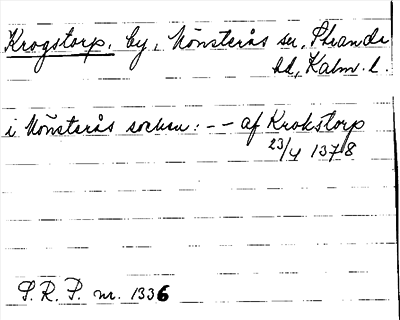 Krogstorp. by, Mönsterås sn, Stranda
hd, Kalm. l.
i Mönsterås socken: -- af Krokstorp
23/4 1378
S. R. P. nr. 1336